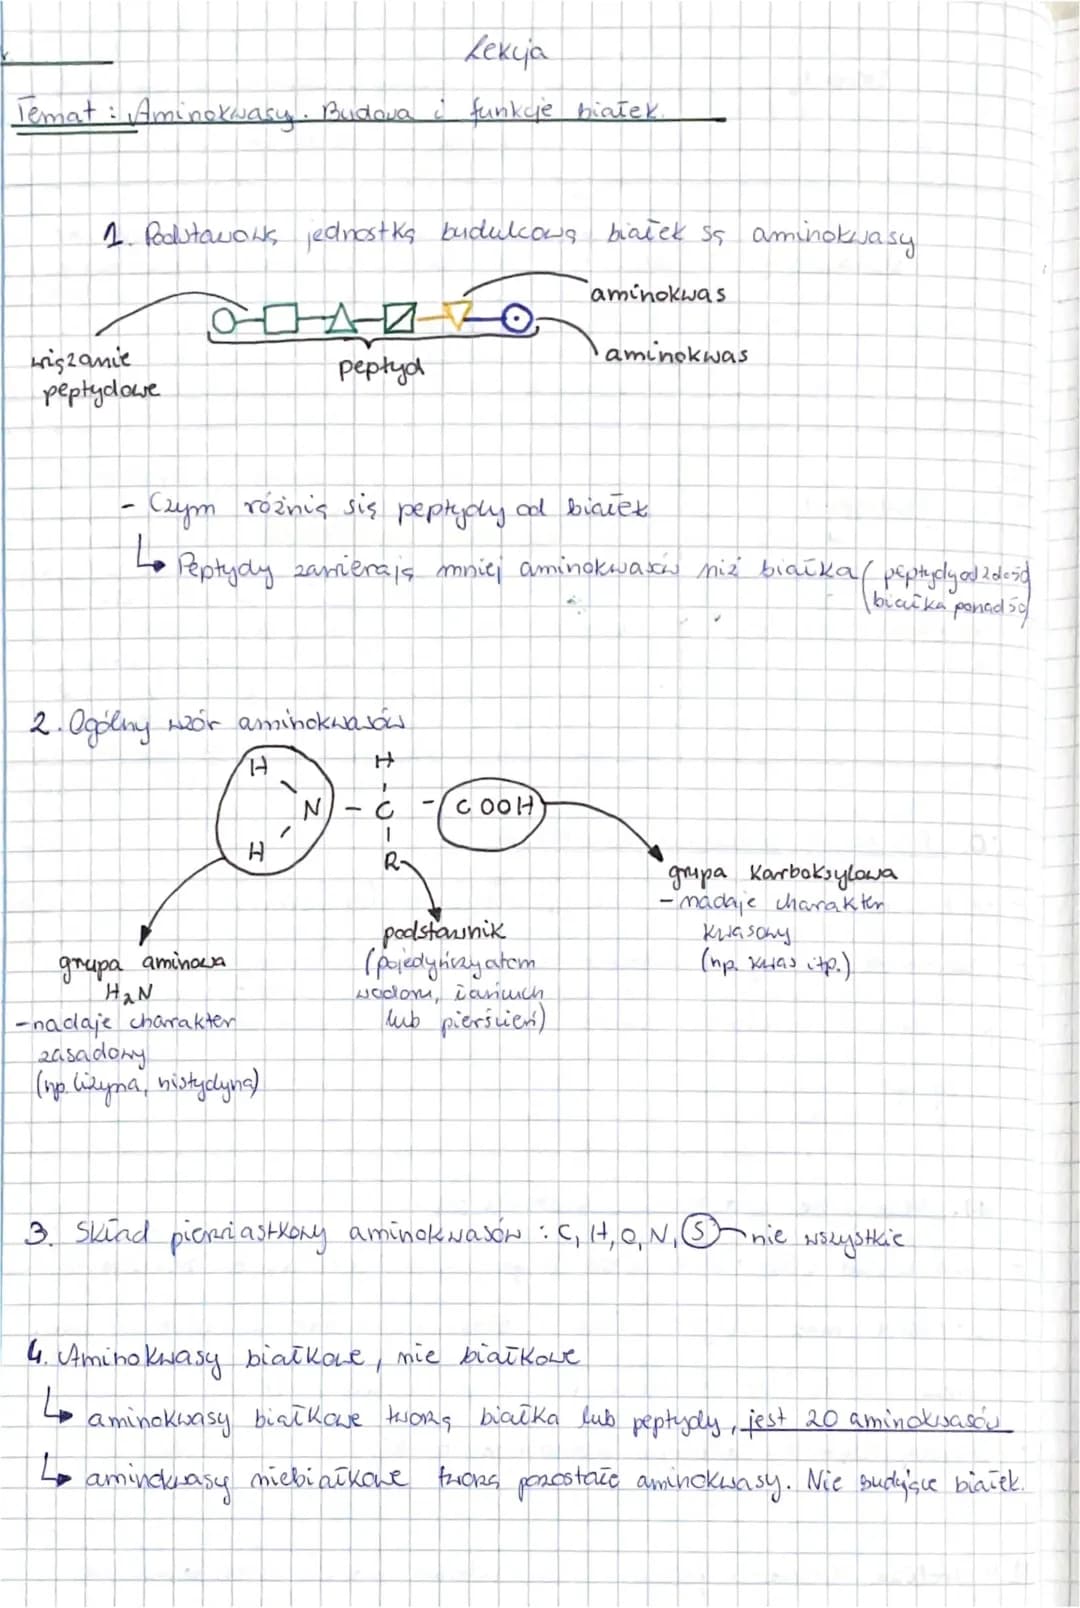 Lekcja
Temat: Aminokwasy. Budowa i funkcje białek.
1. Podstawową jednostką budulcową białek są aminokwasy
aminokwas
wiązanie
peptydowe
peptyd
aminokwas
- Czym różnią się peptydy od białek
Peptydy zawierają mniej aminokwasów niż białka (peptydy od 2 do 50
białka ponad 50)
2. Ogólny wzór aminokwasów
H H
N - C - COOH
H R
grupa karboksylowa
- nadaje charakter
kwasowy
(np. kwas itp.)
podstawnik
(pojedyńczy atom
wodoru, łańcuch
lub pierścień)
grupa aminowa
H2N
- nadaje charakter
zasadowy
(np. lizyna, histydyna)
3. Skład pierwiastkowy aminokwasów: C, H, O, N, S nie wszystkie
4. Aminokwasy białkowe, nie białkowe
aminokwasy białkowe tworzą białka lub peptydy, jest 20 aminokwasów
aminokwasy niebiałkowe tworzą pozostałe aminokwasy. Nie budujące białek.